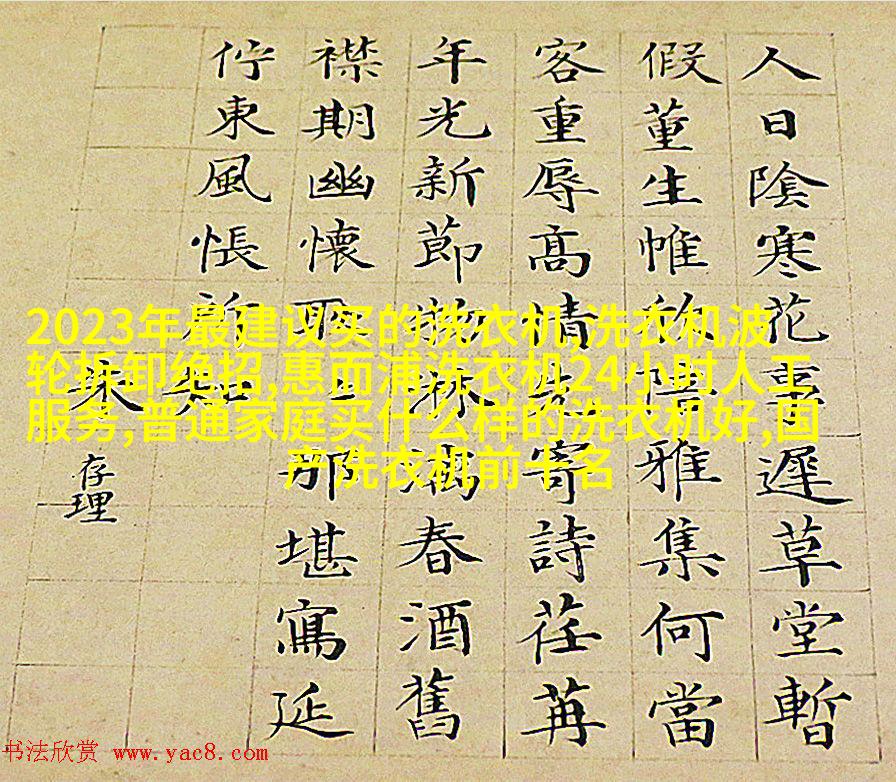 人日陰寒花事遲草堂暫
假董生帷陪雅集何當
客重辱高情先寄詩荏苒
年光新節物淋漓春酒舊
襟期幽懷上那堪寫延
佇東風悵所知
朱
存理
2023年最建议买的洗衣机,洗衣机波
轮拆卸绝招,惠而浦洗衣机24小时人工
服务,普通家庭买什么样的洗衣机好,国
产洗衣机前十名
书法欣赏 www.yac8.com